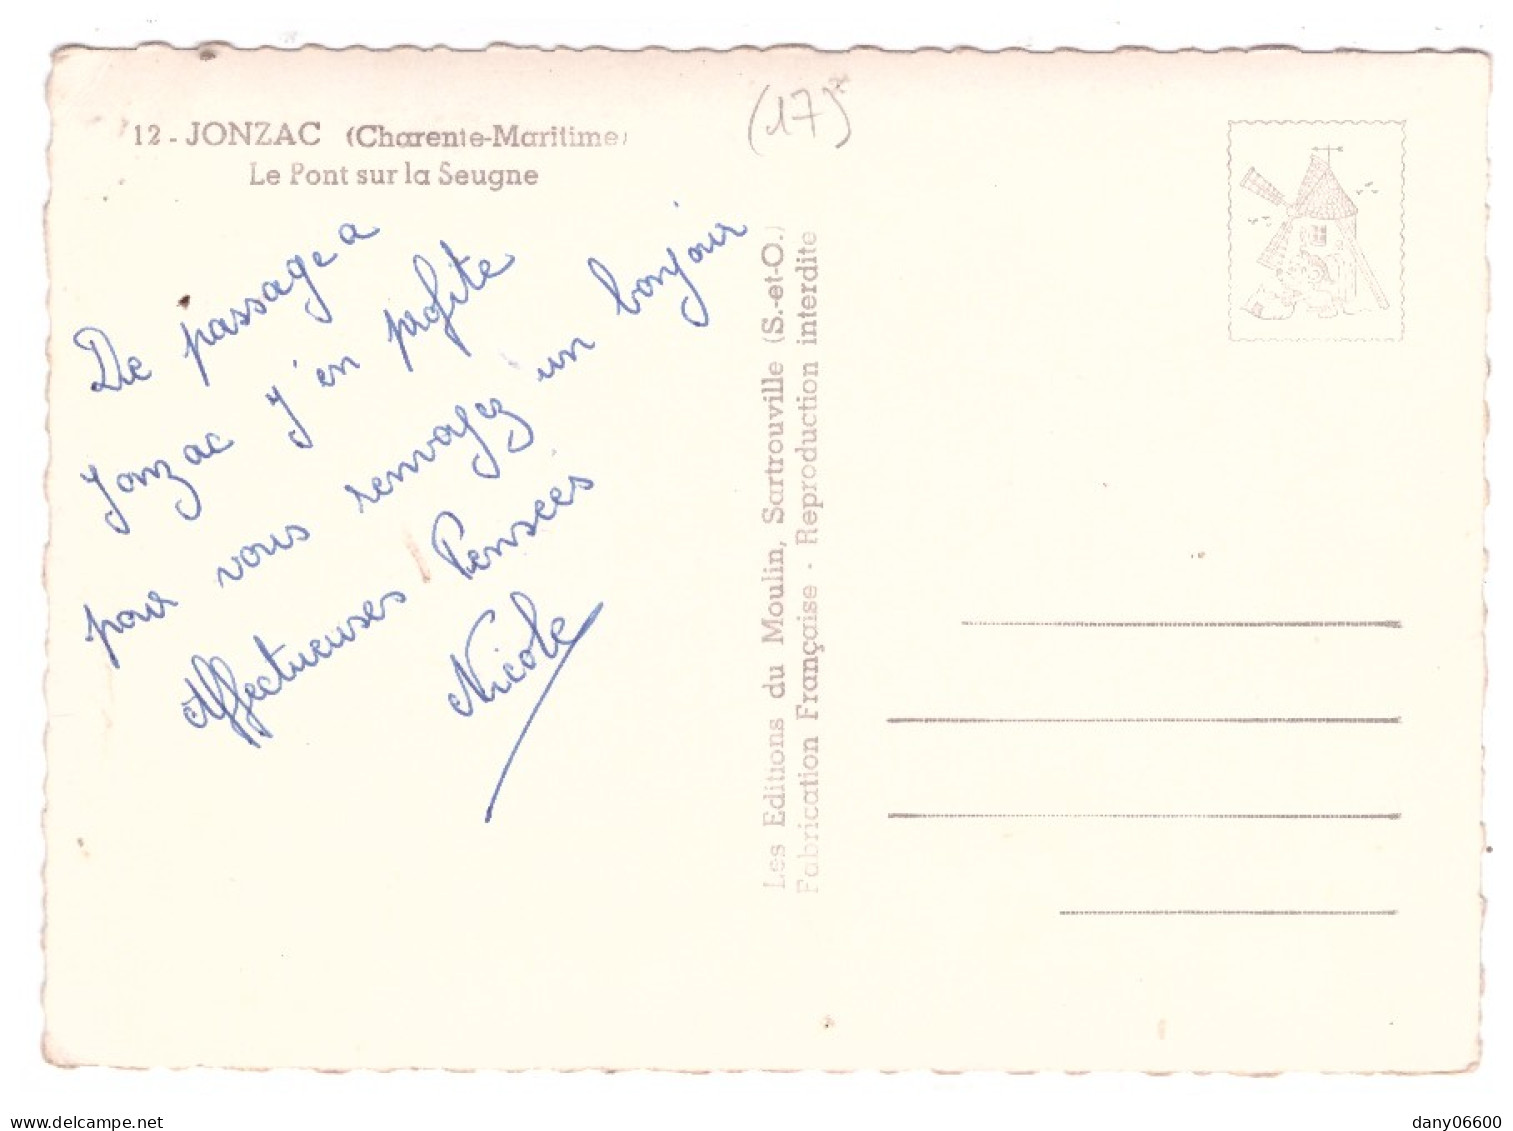 12 - JONZAC (Charente-Maritime)
Le Pont sur la Seugne
(17)
De passage a
Jonzac j'en profite
pour vous renvoyez un bonjour
Affectueuses Pensées
Nicole
Les Editions du Moulin, Sartrouville (S.-et-O.)
Fabrication Française - Reproduction interdite
dany06600